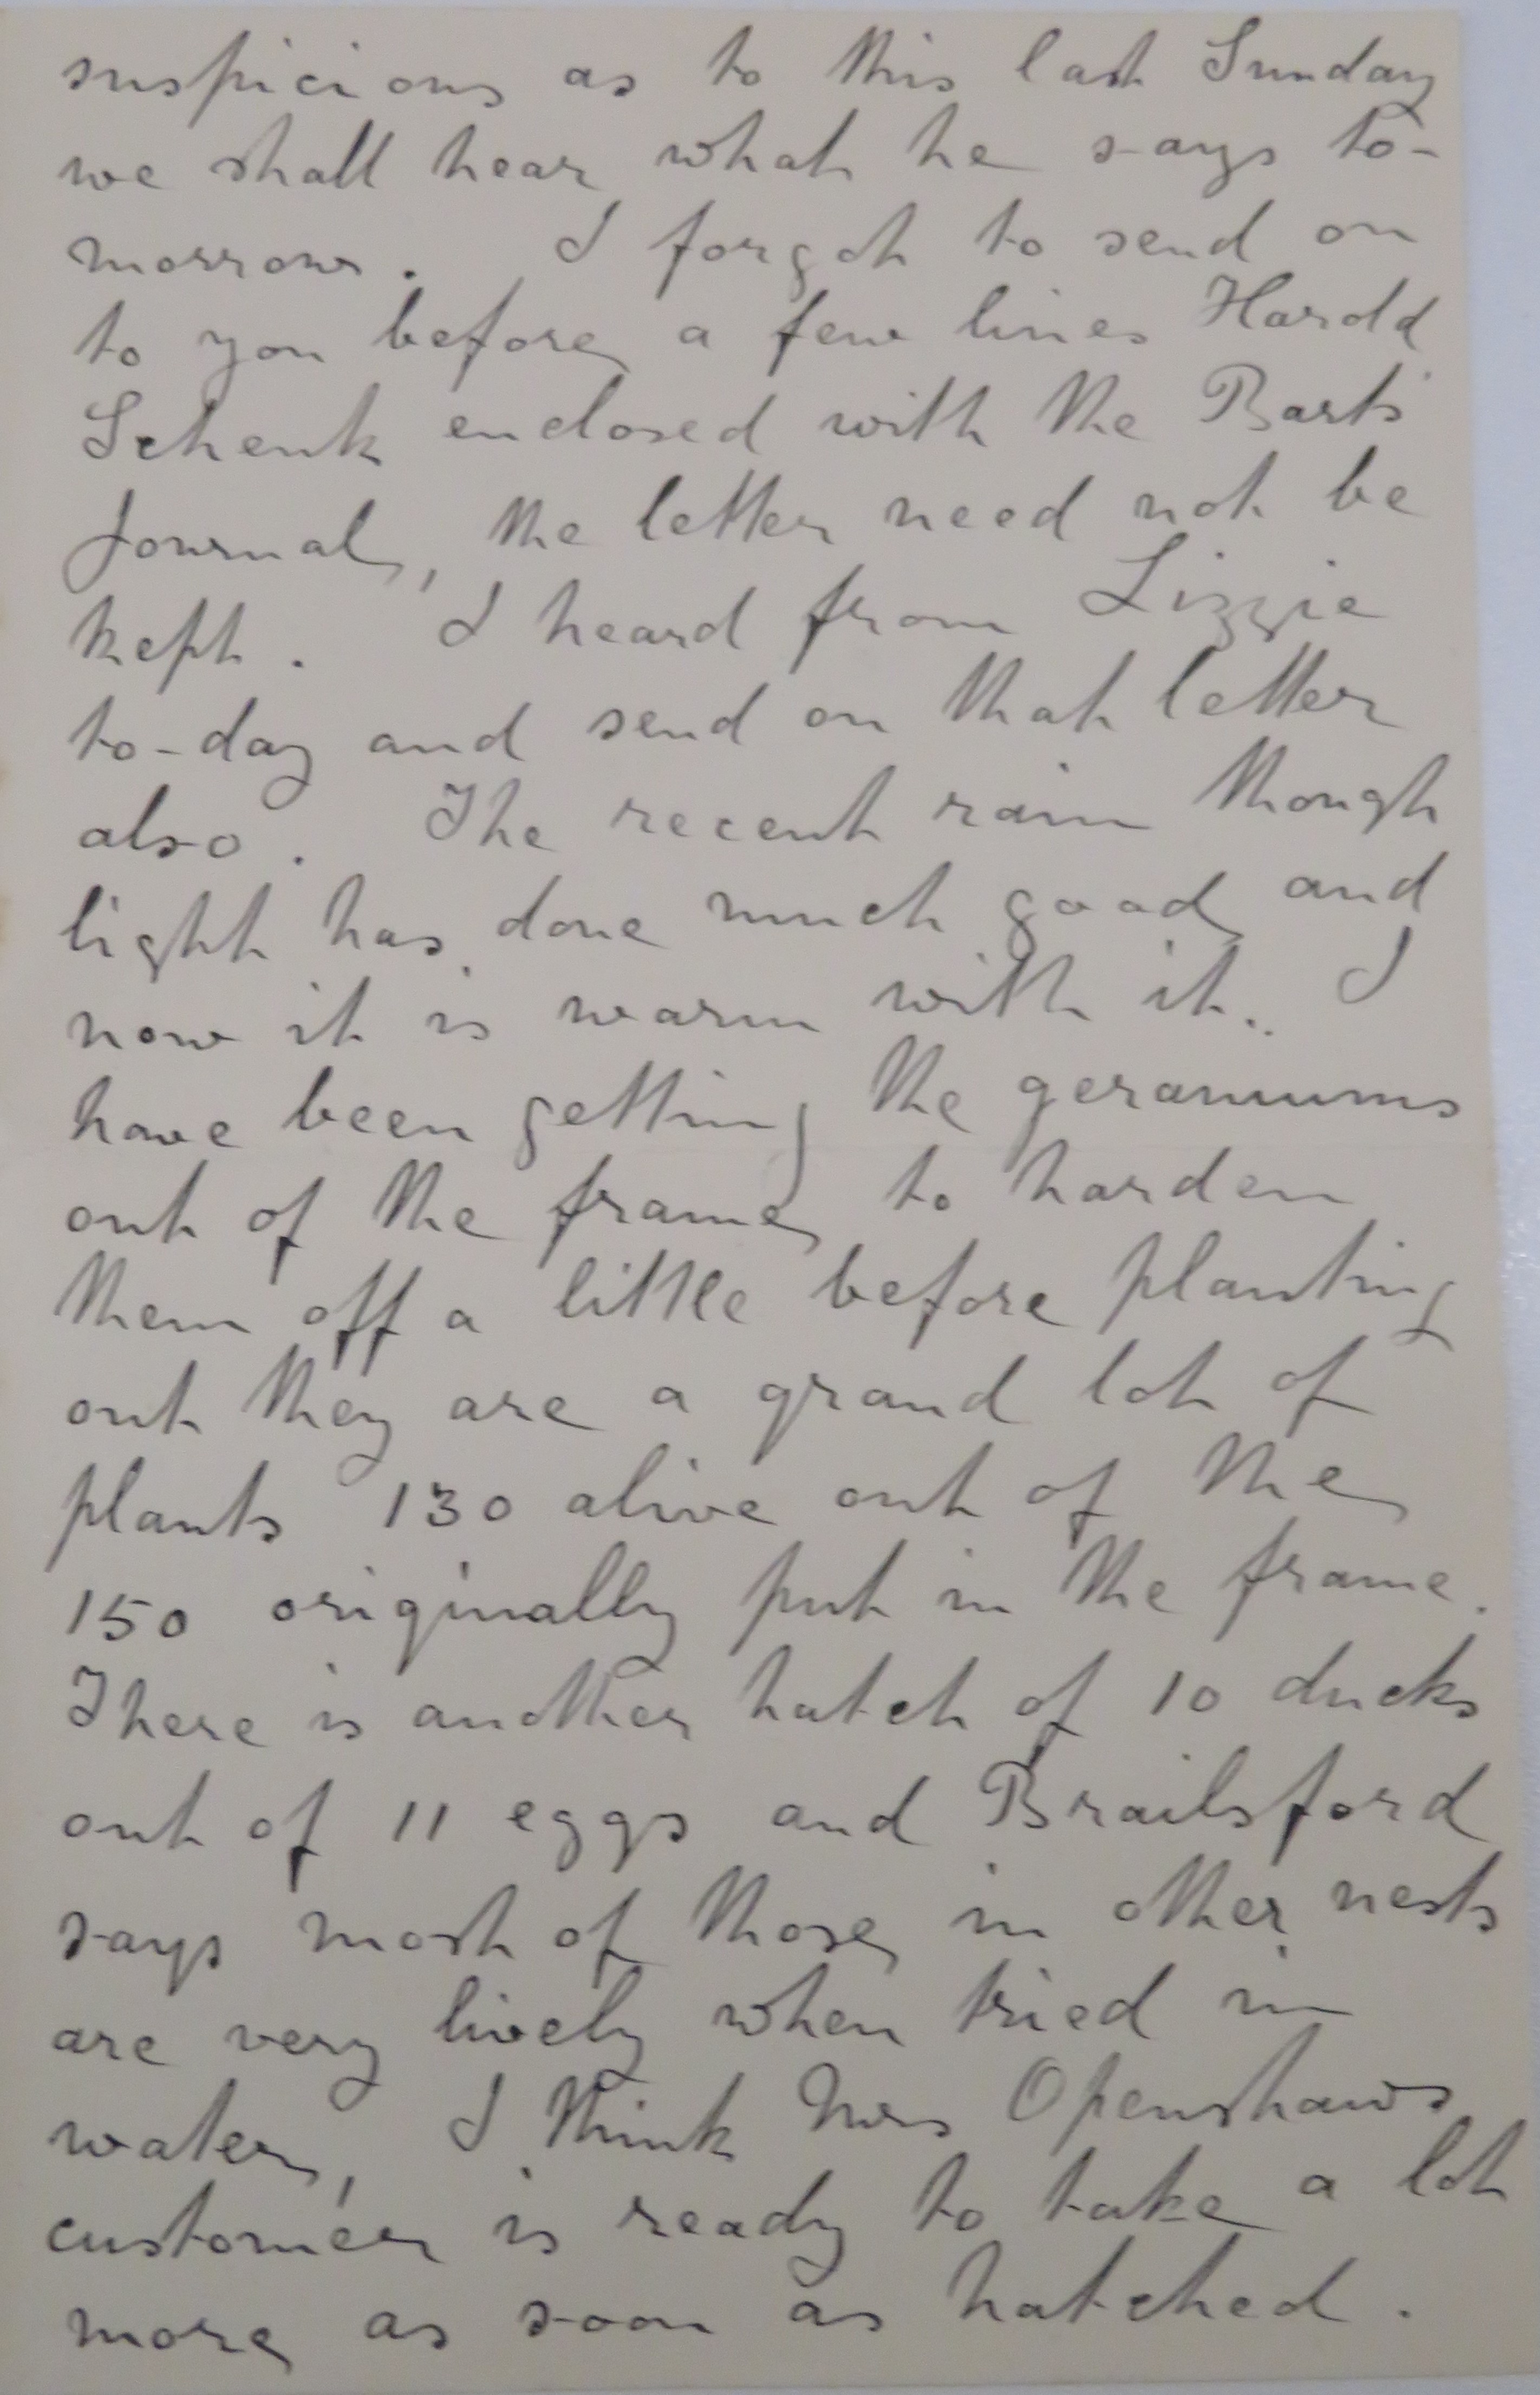 suspicious as to this last Sunday
we shall hear what he says to-
morrow. I forgot to send on
to you before a few lines Harold
Schenk enclosed with the Barts
Journal, the letter need not be
kept. I heard from Lizzie
to-day and send on that letter
also. The recent rain though
light has done much good and
now it is warm with it. I
have been getting the geraniums
out of the frame to harden
them off a little before planting
out they are a grand lot of
plants 130 alive out of the
150 originally put in the frame.
There is another hatch of 10 ducks
out of 11 eggs and Brailsford
says most of those in other nests
are very lively when tried in
water, I think Mrs Openshaws
customer is ready to take a lot
more as soon as hatched.